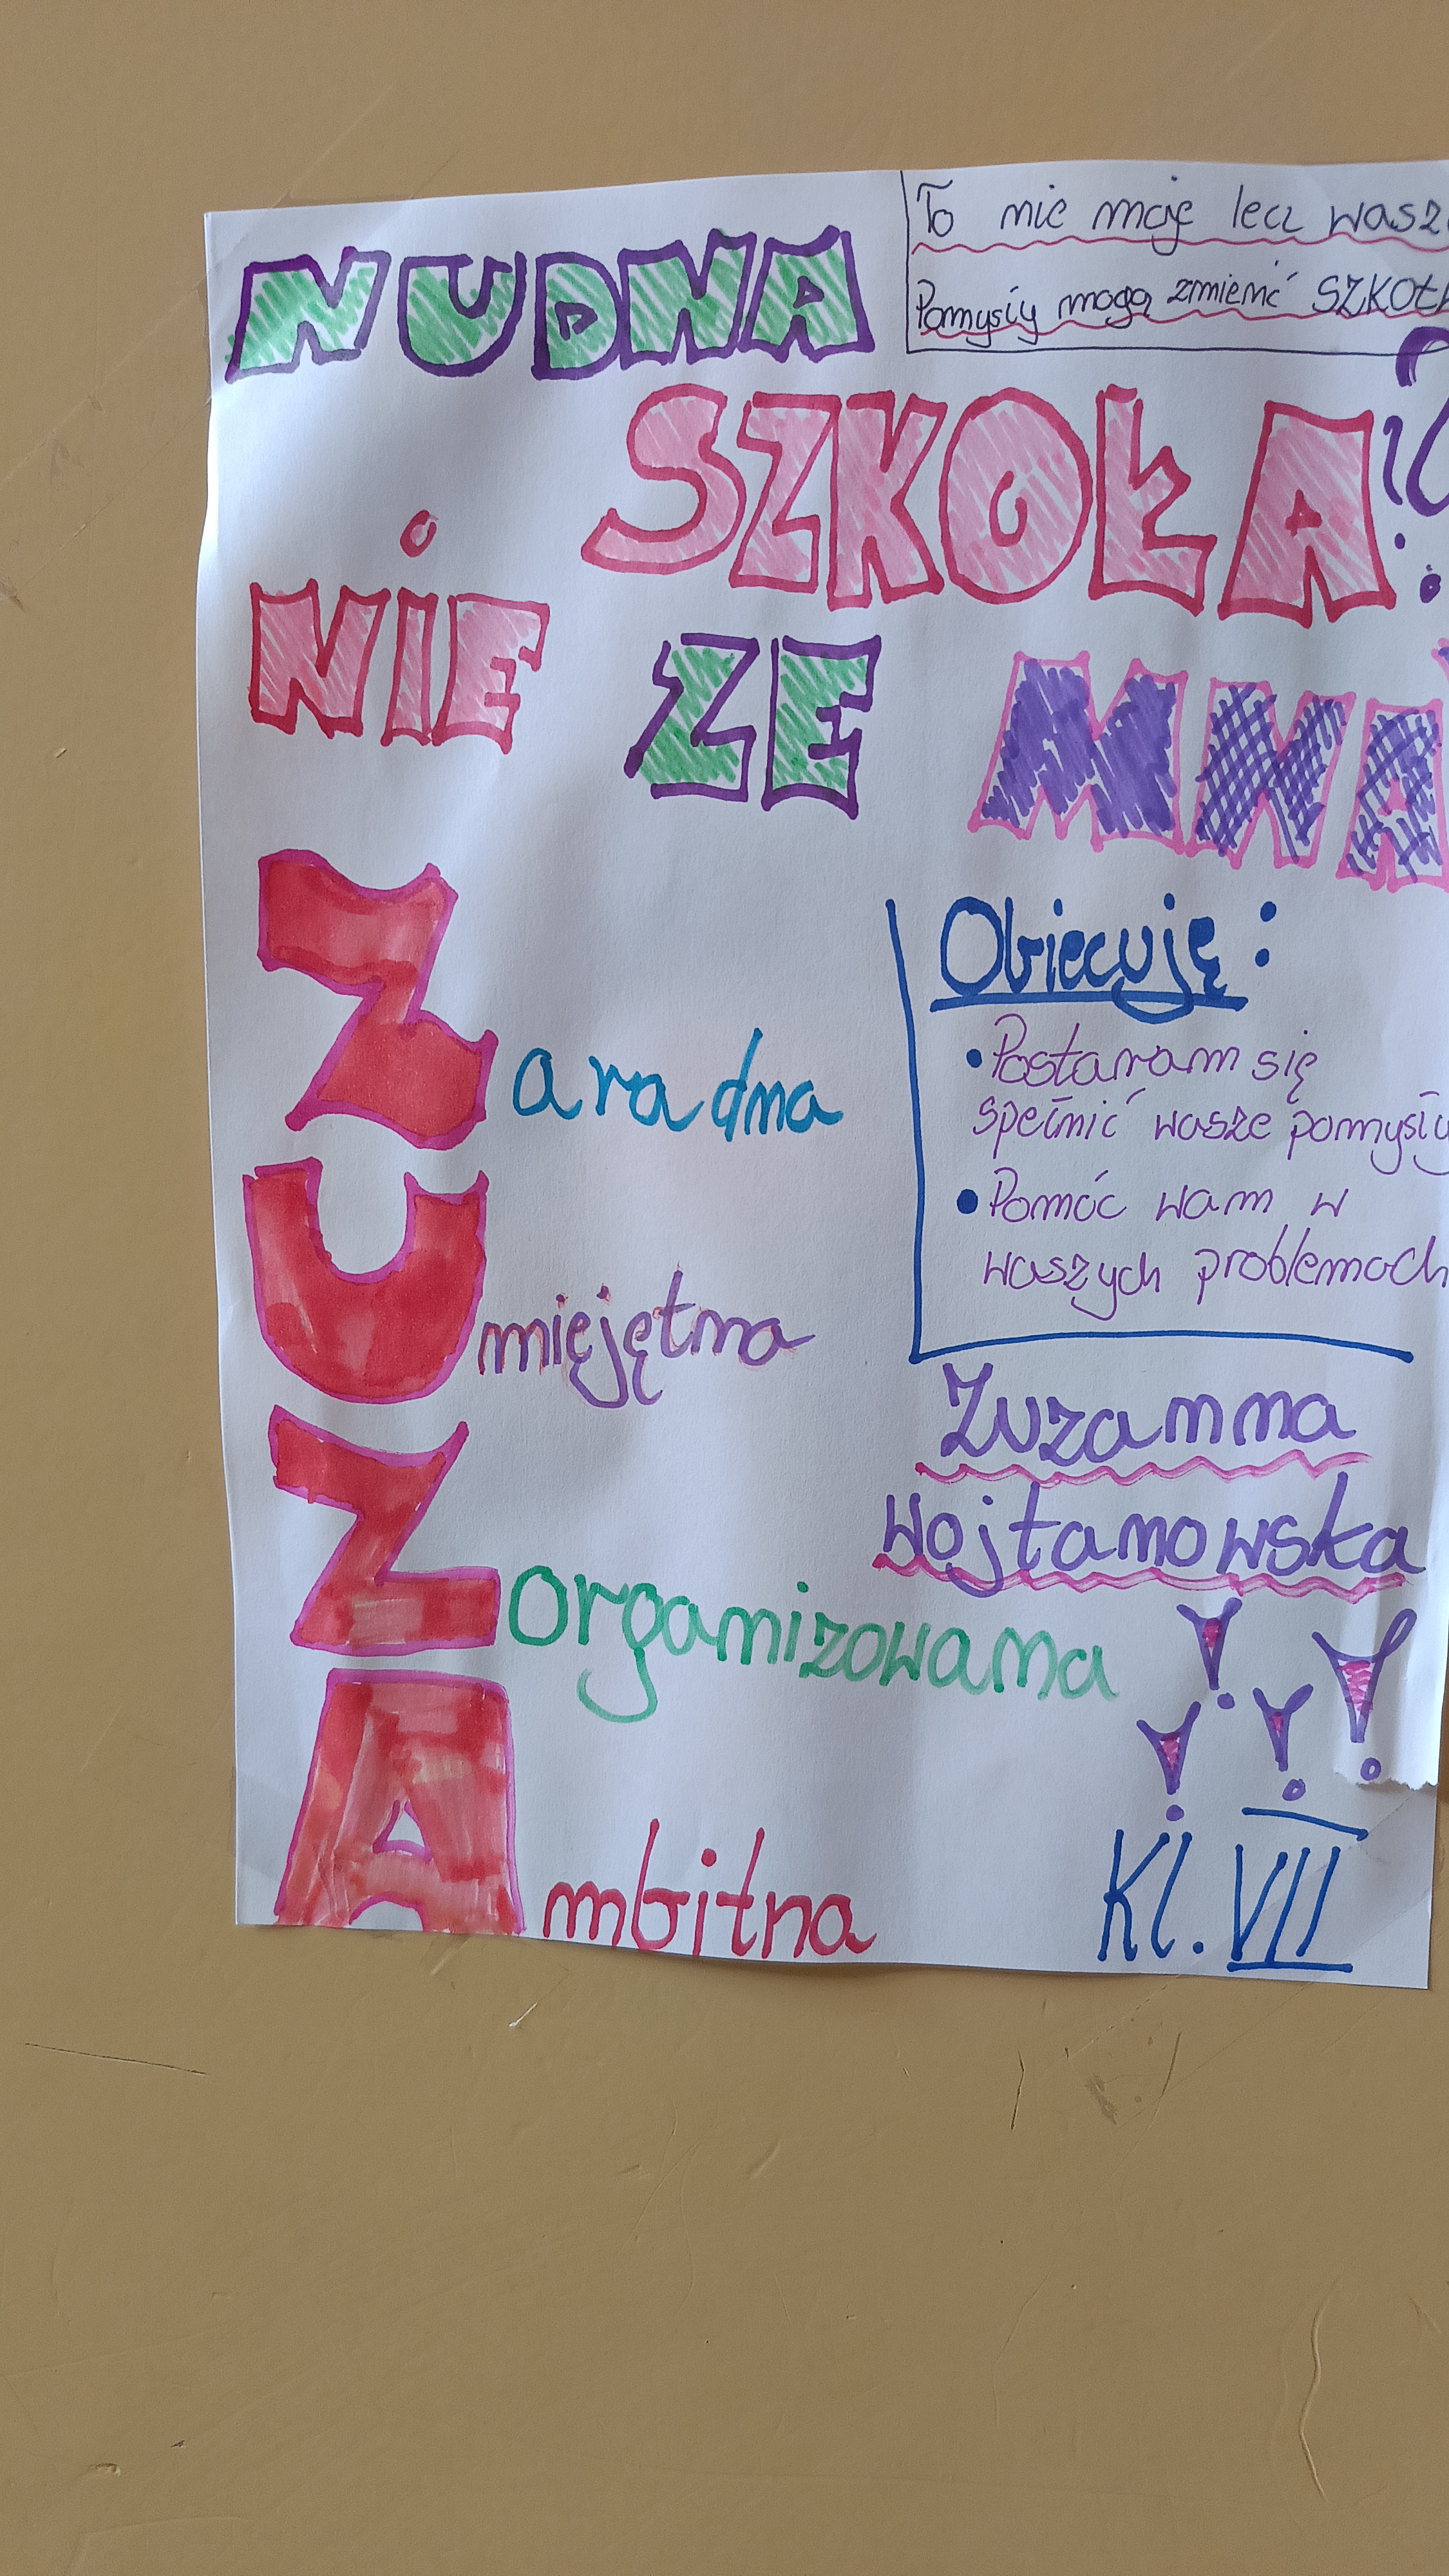 To nie moje lecz wasze
Pomysły mogą zmienić SZKOŁ
NUDNA
SZKOŁA?
NIE ZE MNĄ
Zaradna
Umiejętna
Zorganizowana
Ambitna
Obiecuję:
• Postaram się
spełnić wasze pomysły
• Pomóc wam w
waszych problemach
Zuzanna
Wojtanowska
!!!!
Kl. VII